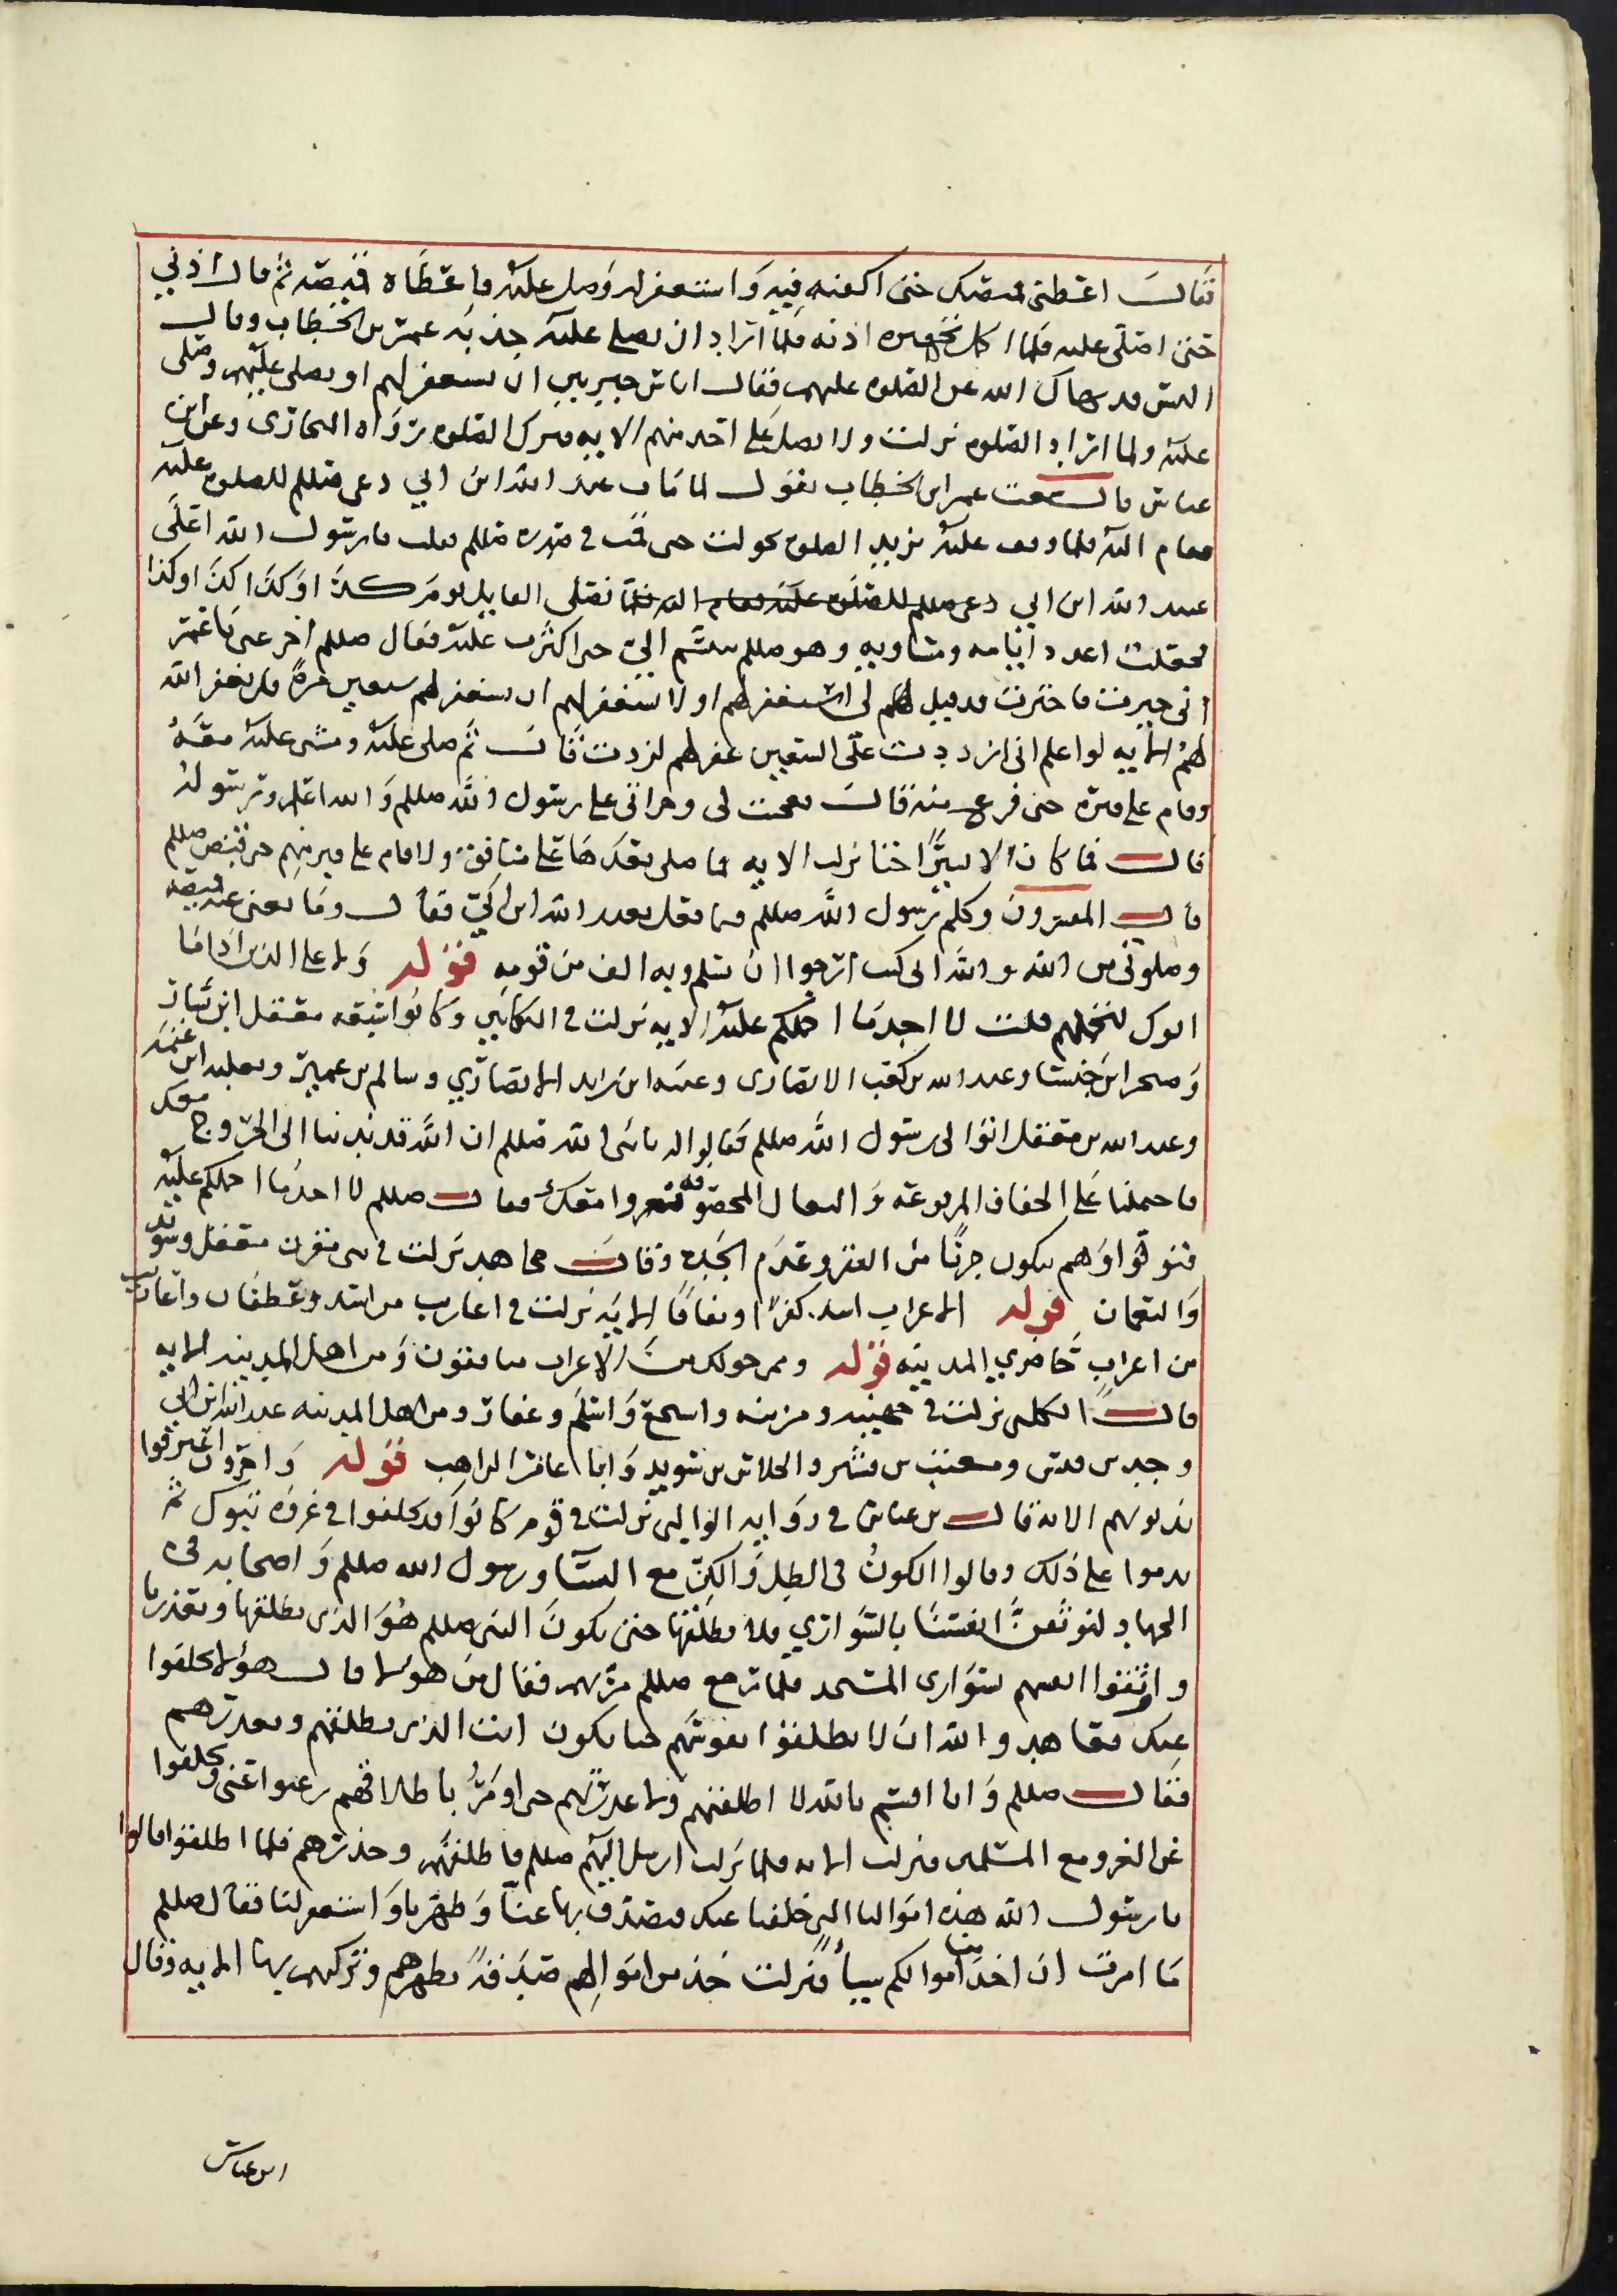 فقال اعطني قميصك حتى اكفنه فيه واستغفر له وصل عليه فاعطاه قميصه ثم قال اذني
حتى اصلي عليه فلما اذنه فلما اراد ان يصلي عليه جذبه عمر بن الخطاب وقال
اليس قد نهاك الله عن الصلوه عليهم فقال انا بين خيرتين ان استغفر لهم او وصلى
عليه ولما اراد الصلوه نزلت ولا تصل على احد منهم الايه فترك الصلوه رواه البخاري وعن ابن
عباس قال سمعت عمر ابن الخطاب يقول لما مات عبد الله ابن ابي دعى صللم للصلوه عليه
فقام اليه فلما وقف عليه يريد الصلوه تحولت حتى قمت في صدره صللم فقلت يا رسول الله اعلى
عبد الله ابن ابي القايل يوم كذا وكذا كذا وكذا
فجعلت اعدد ايامه ومساويه وهو صللم يتبسم الي حتى اكثرت عليه فقال صللم اخر عني يا عمر
اني خيرت فاخترت قد قيل لي استغفر لهم او لا تستغفر لهم ان تستغفر لهم سبعين مرة فلن يغفر الله
لهم الايه لو اعلم اني ان زدت على السبعين غفر لهم لزدت قال ثم صلى عليه ومشى عليه معه
وقام على قبره حتى فرغ منه قال فعجبت لي وجراتي على رسول الله صللم والله اعلم ورسوله
قال فما كان الا يسيرًا حتا نزلت الايه فما صلى بعدها على منافق ولا قام على قبر منهم حتى قبض صللم
قال المفسرون وكلم رسول الله صللم فيما فعل بعبد الله ابن ابي فقال وما يغني عنه قميصه
وصلوتي من الله والله اني كنت ارجوا ان يسلم به الف من قومه قوله ولا على الذين اذا ما
اتوك لتحملهم قلت لا اجد ما احملكم عليه الايه نزلت في البكايين وكانوا سبعه معقل ابن يسار
وصخر ابن خنسا وعبد الله بن كعب الانصاري وعتبه ابن زايد الانصاري وسالم بن عمير وثعلبه ابن غنمه
وعبد الله بن مغفل اتوا الى رسول الله صللم فقالوا له يا نبي الله صللم ان الله قد ندبنا الى الخروج معك
فاحملنا على الخفاف المربوعه والنعال المخصوفه نغزوا معك فقال صللم لا اجد ما احملكم عليه
فتولوا وهم يبكون حزنًا من الفقر وعدم الجده وقال مجاهد نزلت في بني مقرن معقل وسويد
والنعمان قوله الاعراب اشد كفرا ونفاقا الايه نزلت في اعاريب من اسد وغطفان واعاريب
من اعراب حاضري المدينه قوله وممن حولكم من الاعراب منافقون ومن اهل المدينه الايه
قال الكلبي نزلت في جهينه ومزينه واشجع واسلم وغفار ومن اهل المدينه عبد الله ابن ابي
وجد بن قيس ومعتب بن قشير والجلاس بن سويد وابا عامر الراهب قوله واخرون اعترفوا
بذنوبهم الايه قال بن عباس في روايه الوالبي نزلت في قوم كانوا قد تخلفوا في غزوه تبوك ثم
ندموا على ذلك وقالوا انكون في الظل والكن مع النسا ورسول الله صللم واصحابه في
الجهاد لنوثقن انفسنا بالسواري فلا نطلقها حتى يكون النبي صللم هو الذي يطلقها ويعذرنا
واوثقوا انفسهم بسواري المسجد فلما رجع صللم مر بهم فقال من هولا قال هولا تخلفوا
عنك فعاهدوا الله ان لا يطلقوا نفوسهم حتا يكون انت الذي يطلقهم ويعذرهم
فقال صللم وانا اقسم بالله لا اطلقهم ولا اعذرهم حتى اومر باطلاقهم رغبوا عني وتخلفوا
عن الغزو مع المسلمين فنزلت الايه فلما نزلت ارسل اليهم صللم فاطلقهم وعذرهم فلما اطلقوا قالوا
يا رسول الله هذه اموالنا التي خلفتنا عنك فتصدق بها عنا وطهرنا واستغفر لنا فقال صللم
ما امرت ان اخذ من اموالكم شيأً فنزلت خذ من اموالهم صدقةً تطهرهم وتزكيهم بها الايه وقال
ابن عباس